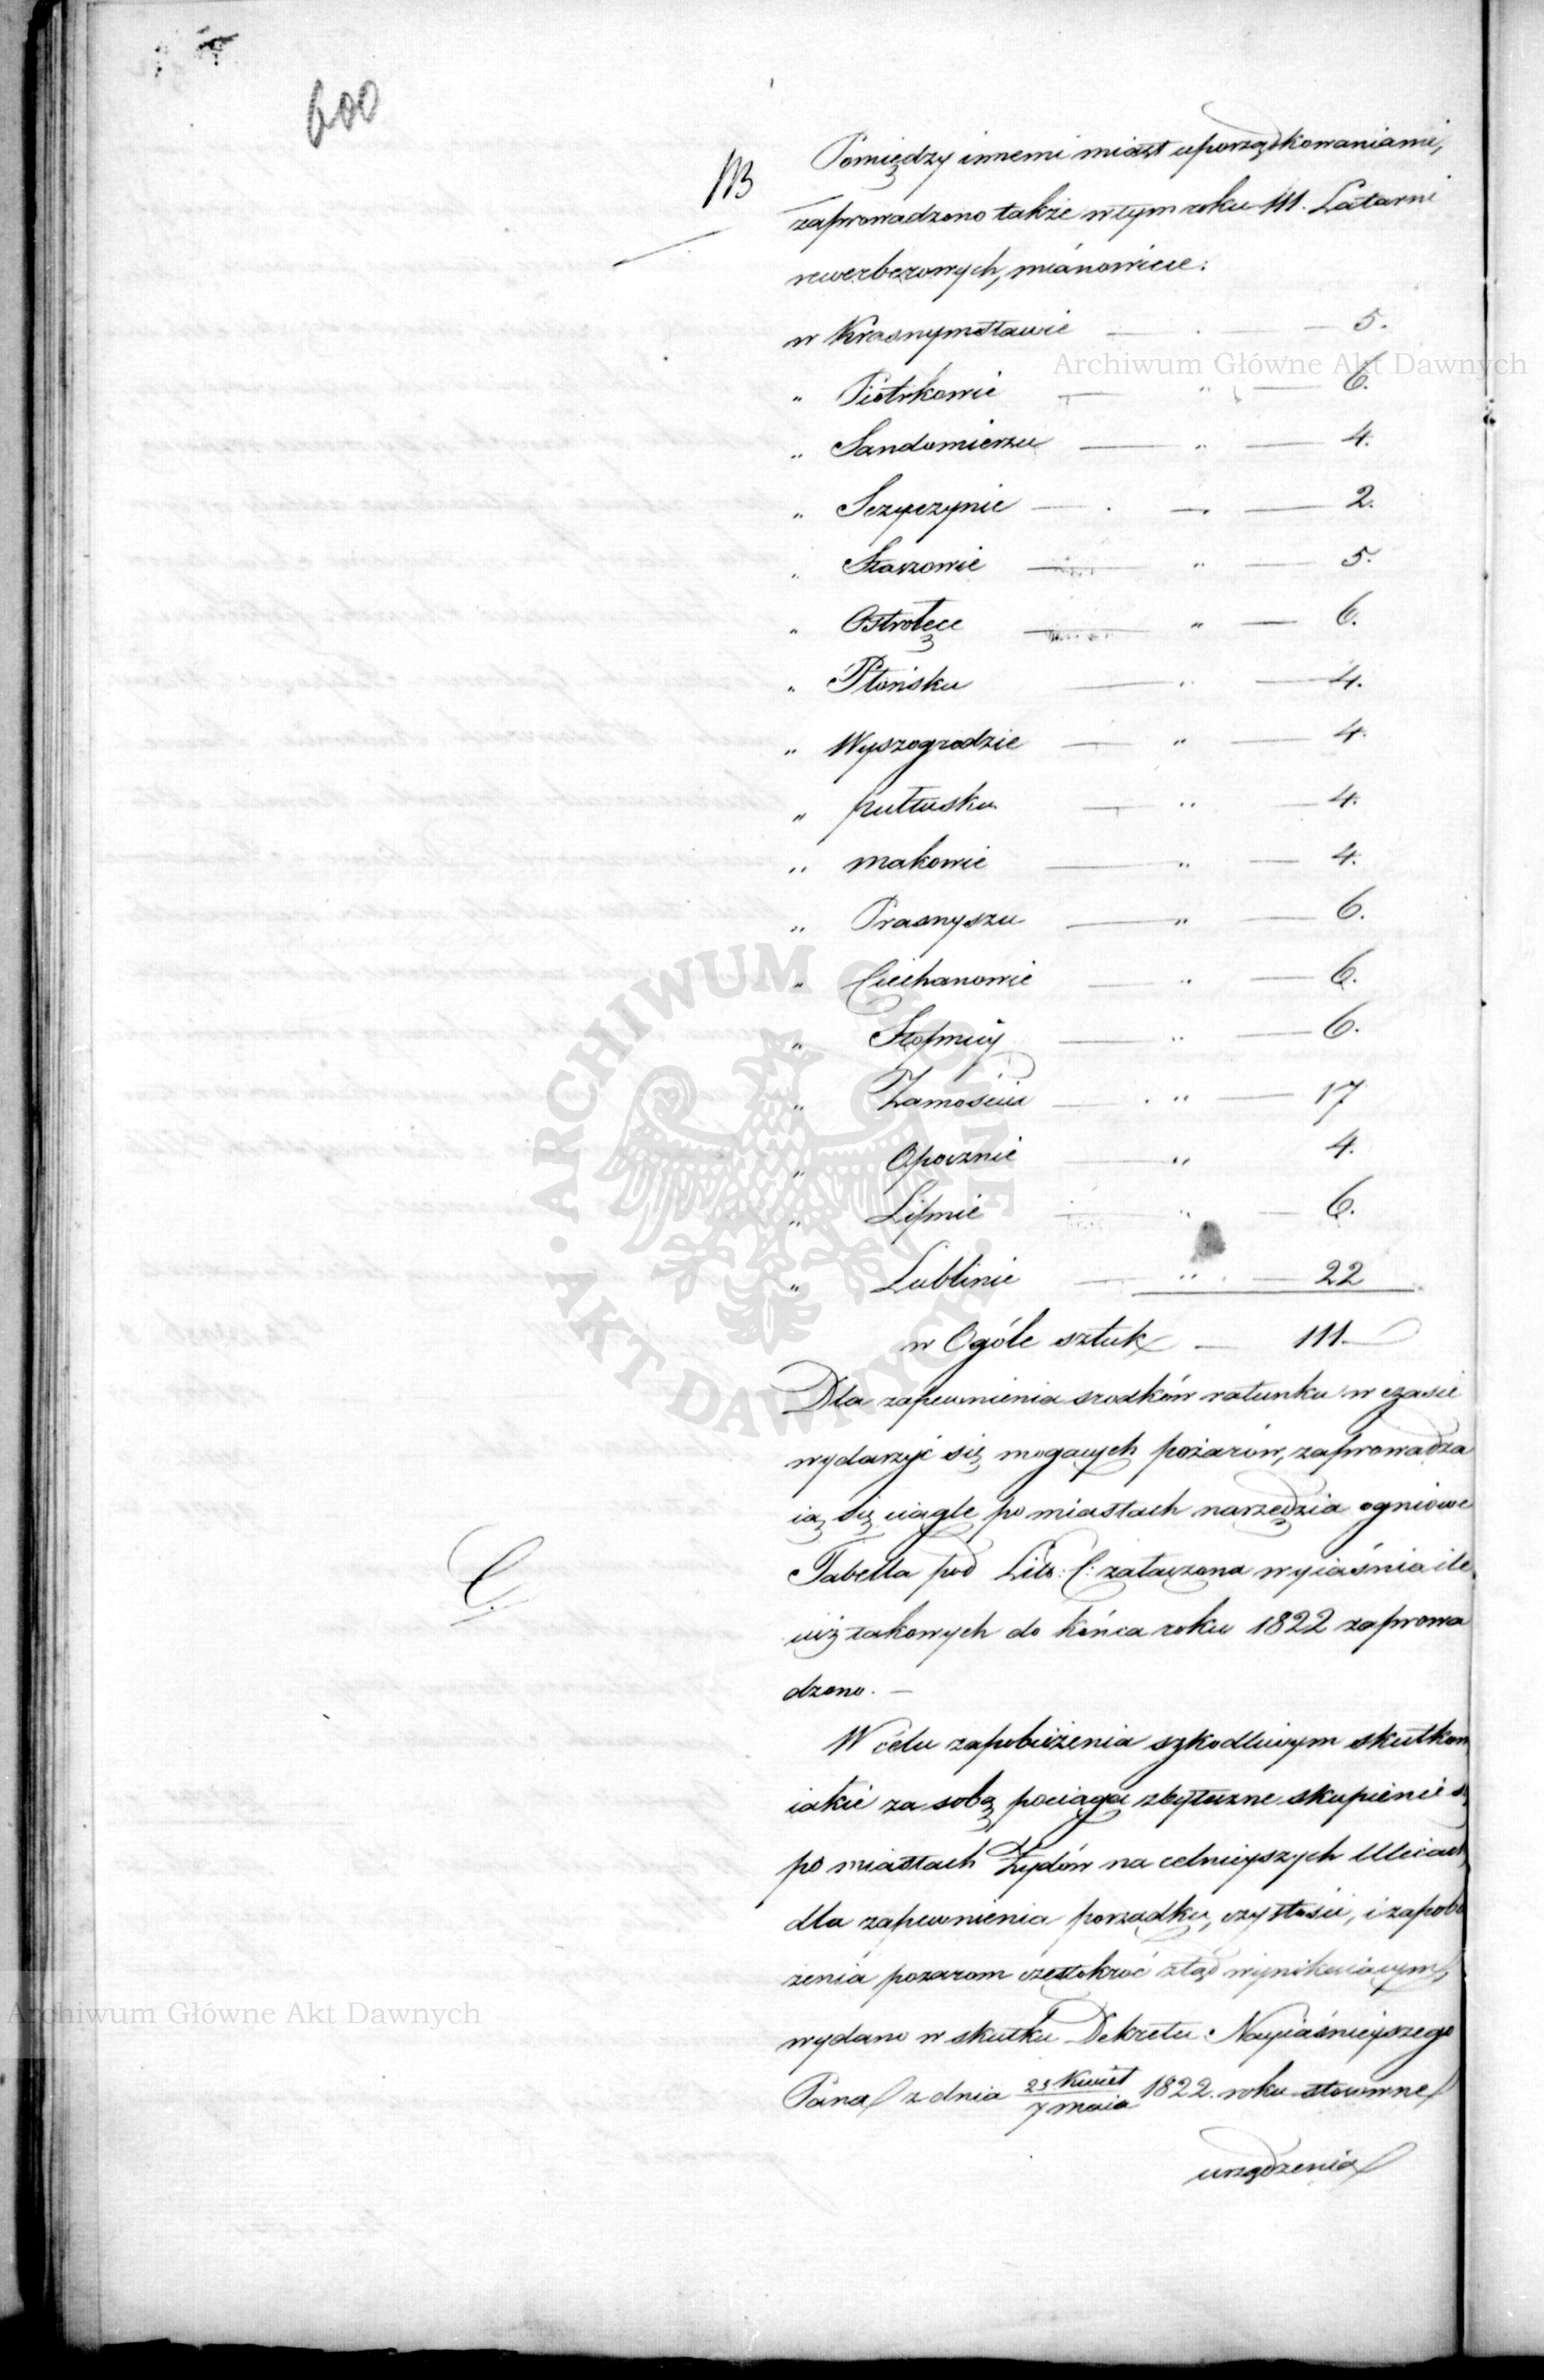 600
Pomiędzy innemi miast uporządkowaniami,
zaprowadzono także w tym roku 111. Latarni
rewerberowych, mianowicie:
w Krasnymstawie — . — 5.
Archiwum Główne Akt Dawnych
„ Piotrkowie — „ — 6.
„ Sandomierzu — „ — 4.
„ Szczyczynie — . — 2.
„ Staszowie — „ — 5.
„ Ostrołęce — „ — 6.
„ Płońsku — „ — 4.
„ Wyszogrodzie — „ — 4.
„ pułtusku — „ — 4.
„ makowie — „ — 4.
„ Prasnyszu — „ — 6.
„ Ciechanowie — „ — 6.
„ Stopnicy — „ — 6.
„ Zamościu — „ — 17
„ Opocznie — „ 4.
„ Lipnie — „ — 6.
„ Lublinie — „ — 22
w Ogóle sztuk — 111.—
ARCHIWUM GŁÓWNE · AKT DAWNYCH ·
Dla zapewnienia srodków ratunku w czasie
wydarzyć się mogących pożarów, zaprowadza
ią się ciągle po miastach narzędzia ogniowe
C.
Tabella pod Lit: C: załączona wyiaśnia ile
iuż takowych do końca roku 1822 zaprowa
dzono. —
W celu zapobieżenia szkodliwym skutkom
iakie za sobą pociąga zbyteczne skupienie
po miastach Żydów na celnieyszych Ulicach
dla zapewnienia porządku, czystości, i zapobie
żenia pożarom częstokroć ztąd wynikaiącym,
Archiwum Główne Akt Dawnych
wydano w skutku Dekretu Nayiaśnieyszego
Pana z dnia 25 Kwiet / 7 maia 1822. roku stosowne
urządzenia